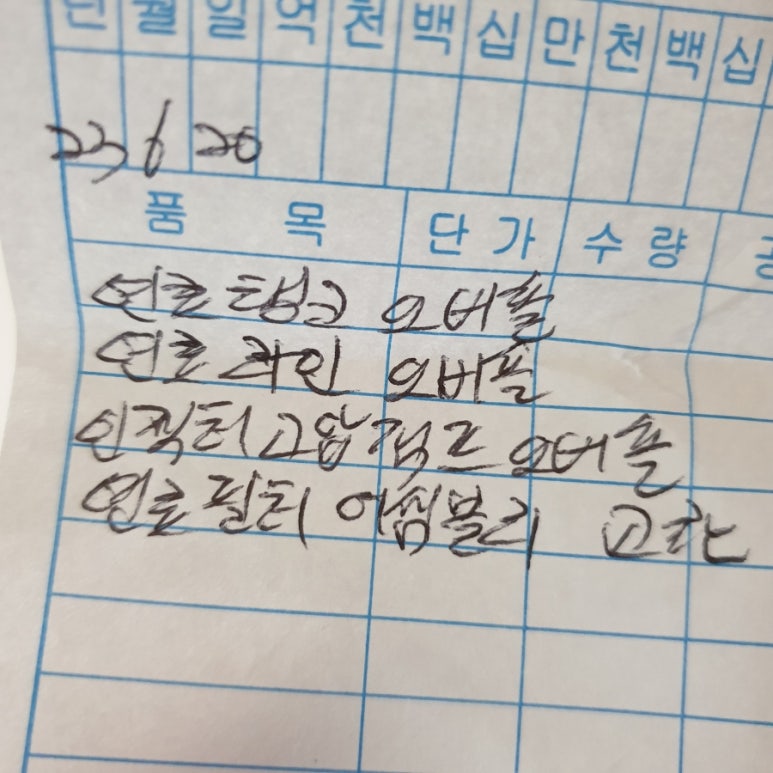 년 월 일 억 천 백 십 만 천 백 십
23 6 20
품 목 단가 수량 공
연료탱크 오버홀
연료 라인 오버홀
인젝터 고압펌프 오버홀
연료필터 어셈블리 교환